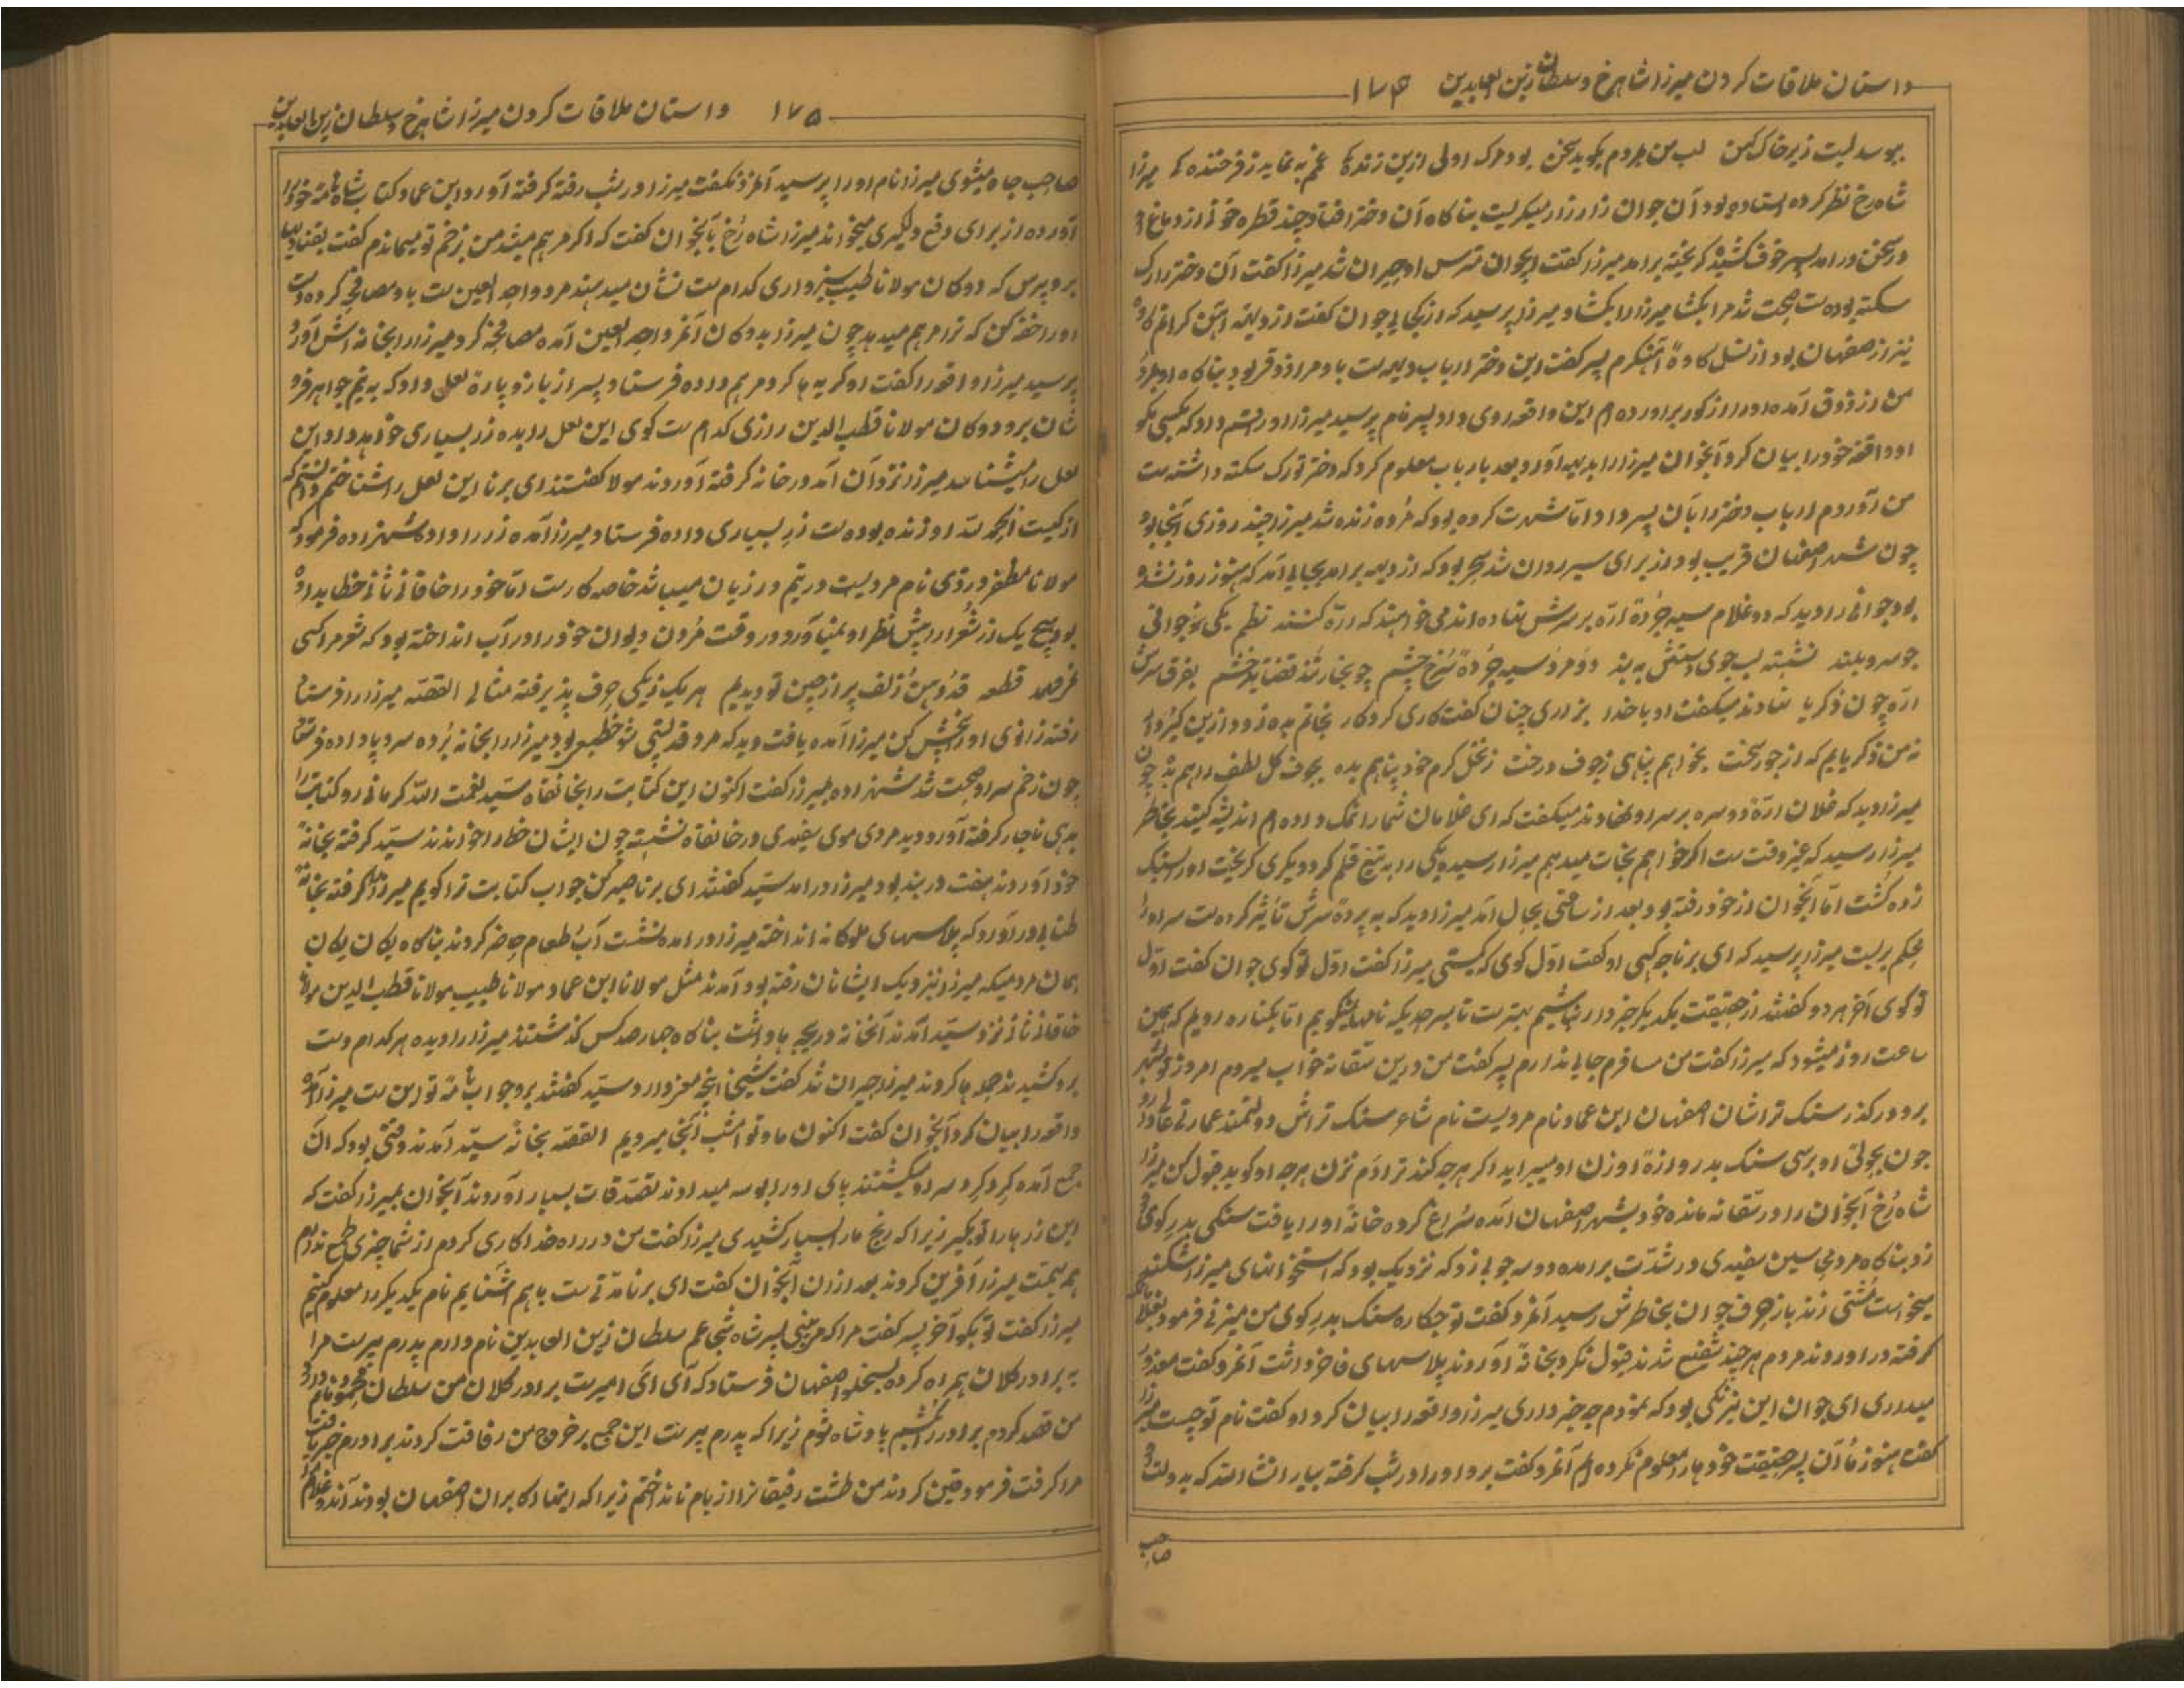 داستان ملاقات کردن میرزا شاهرخ و سلطان زین العابدین ۱۷۴
ببوسد لبت زیر خاک کهن لب من بمردم بگوید سخن بود مرک اولی ازین زندکی غم به نماید ز فرخندکی میرزا
شاه رخ نظر کرده استاده بود آن جوان زار زار میکریست بناکاه آن دختر افتاد چند قطره خونی از دماغ او
در سخن درامد پسر خوف کشیده کریخته برامد میرزا کفت ایجوان مترس او حیران شد میرزا کفت آن دختر را رک
سکته بوده ست صحت شد مرا بکشا میرزا را بکشاد میرزا پرسید که از کجایی جوان کفت از دیهه
نیز از صفهان بود از نسل کاوهٔ آهنکرم پسر کفت این دختر ارباب دیهه ست با و مرا ذوقی بود بناکاه او مرد
من از ذوق آمده او را از کور براورده ام این واقعه روی داد پسر نام پرسید میرزا درشتم داد که بکسی مکو
او واقعهٔ خود را بیان کرد آنجوان میرزا را بدیهه آورد بعد بارباب معلوم کرد که دختر تو رک سکته داشته ست
من آوردم ارباب دختر را بآن پسر داد اما شهرت کرده بود که مرده زنده شد میرزا چند روزی آنجا بود
چون شهر اصفهان قریب بود از برای سیر روان شد سحر بود که از دیهه برامد بجایی آمد که هنوز روز نشده
بود جوانی را دید که دو غلام سیه چردهٔ اره بر سرش نهاده اند می خواهند که اره کنند نظم یکی نوجوانی
چو سرو بلند نشسته لب جوی دستش به بند دو مرد سیه چردهٔ سرخ چشم چو بیخار شد قضا به خشم بفرق سرش
اره چون ذکریا نهادند میکفت او با خدا بزاری چنان کفت کای کردکار نجاتم بده زود ازین کیر و دار
نه من ذکریایم که از جور سخت بخواهم پناهی ز جوف درخت ز نخل کرم خود پناهم بده بجوف کل لطف راهم بده چون
میرزا دید که غلامان ارهٔ دوسره بر سر او نهادند میکفت که ای غلامان شما را نمک داده ام اندیشه کنید بخاطر
میرزا رسید که عیز وقت ست اکر خواهم نجات میدهم میرزا رسید و یکی را به تیغ قلم کرد و دیکری کریخت او را بسنک
زده کشت اما آنجوان از خود رفته بود بعد از ساعتی بحال آمد میرزا دید که به پردهٔ سرش تاثیر کرده ست سر او را
محکم بربست میرزا پرسید که ای برنا چه کسی او کفت اول کوی که کیستی میرزا کفت اول تو کوی جوان کفت اول
تو کوی آخر هر دو کفتند از حقیقت یکدیکر خبردار نباشیم بهتر ست تا بسرحدیکه نامها بکویم اما بکناره رویم که همین
ساعت روز میشود که میرزا کفت من مسافرم جایی ندارم پسر کفت من درین سقانه خواب میروم امروز تو بشهر
برو در کذر سنک تراشان اصفهان ابن عماد نام مردیست نام شاعر سنک تراش دولتمند عمارتی عالی دارد
چون بچولی او برسی سنک بدروازهٔ او زن او میبراید اکر هرچه کند ترا دم نزن هرچه او کوید قبول کن میرزا
شاه رخ آنجوان را در سقانه مانده خود بشهر اصفهان آمده سراغ کرده خانهٔ او را یافت سنکی بدر کوی او
زد بناکاه مردی سین سفیدی در شدت برامده دو سه چوبی زد که نزدیک بود که استخوانهای میرزا شکند
میخواست مشتی زند باز حرف جوان بخاطرش رسید آنمرد کفت تو چکاره سنک بدر کوی من میزنی فرمود بغلامان
کرفته دراوردند مردم هرچند شفیع شدند قبول نکرد بخانهٔ آوردند پلاسهای فاخر داشت آنمرد کفت معذور
میداری ای جوان این نیرنکی بود که نمودم چه خبر داری میرزا واقعه را بیان کرد او کفت نام تو چیست میرزا
کفت هنوز ما آن پسر حقیقت خودها را معلوم نکرده ایم آنمرد کفت برو او را در شب کرفته بیار انشاء الله که بدولت او
صاحب
۱۷۵ داستان ملاقات کردن میرزا شاهرخ و سلطان زین العابدین
صاحب جاه میشوی میرزا نام او را پرسید آنمرد نکفت میرزا در شب رفته کرفته آورد ابن عماد کتاب شاه نامه خود را
آورده از برای دفع دلکیری میخواند میرزا شاه رخ بآنجوان کفت که اکر مرهم میشد من زخم تو میماندم کفت بغداد
برو پرس که دوکان مولانا طبیب سبزواری کدام ست نشان میدهند مرد واجد العین ست با و مصافحه کرده دست
او را خفه کن که ترا مرهم میدهد چون میرزا بدوکان آنمرد واجد العین آمده مصافحه کرد میرزا را بخانه اش آورد
پرسید میرزا واقعه را کفت او کریه ها کرد مرهم داده فرستاد پسر از بازو پارهٔ لعلی داد که به تیم جواهر فرو
شان برو دوکان مولانا قطب الدین رازی کدام ست کوی این لعل را بده زر بسیاری خواهد داد این
لعل را میشناسد میرزا نزد آن آمد در خانه کرفته آوردند مولا کفتند ای برنا این لعل را شناختم دانستم که
از کیست الحمد لله او زنده بوده ست زر بسیاری داده فرستاد میرزا آمده زر را داد شهزاده فرمود که
مولانا مظفر وردی نام مردیست در یتم در زیان میباشد خاصه کارست اما خود را خاقانی ثانی خطاب داده
بود هیچ یک از شعرا را پیش نظر او نمیاورد در وقت مردن دیوان خود را در آب انداخته بود که شعر مرا کسی
نفهمد قطعه قد و دهن زلف پر از چین تو دیدیم هر یک ز یکی حرف پذیرفته مثالی القصه میرزا را فرستاد
رفته زانوی او را بخش کن میرزا آمده یافت دید که مرد قدپستی شوخ طبعی بود میرزا را بخانه برده سروپا داده فرستاد
چون زخم سر او صحت شد شهزاده بمیرزا کفت اکنون این کتابت را بخانقاه سید نعمت الله کرمانی رو کتابت را
بدهی ناچار کرفته آورد دید مردی موی سفیدی در خانقاه نشسته چون ایشان خط را خواندند سید کرفته بخانهٔ
خود آوردند هفت دربند بود میرزا درامد سید کفتند ای برنا صبر کن جواب کتابت ترا کویم میرزا را کرفته بخانهٔ
طنابی درآورد که پلاسهای ملوکانه انداخته میرزا درامده نشست آب طعام حاضر کردند بناکاه یکان یکان
همان مردمیکه میرزا نزدیک ایشانان رفته بود آمدند مثل مولانا ابن عماد مولانا طبیب مولانا قطب الدین مولانا
خاقانی ثانی نزد سید آمدند آنخانه دریچه ها داشت بناکاه چهار صد کس کذشتند میرزا را دیده هر کدام دست
برو کشیدند جدها کردند میرزا حیران شد کفت شیخی اینچه مغز دارد سید کفتند برو جواب نامهٔ تو این ست میرزا آمده
واقعه را بیان کرد آنجوان کفت اکنون ما و تو امشب آنجا میرویم القصه بخانهٔ سید آمدند وقتی بود که آن
جمع آمده کرد کرد سر او میکشتند پای او را بوسه میدادند تصدقات بسیار آوردند آنجوان بمیرزا کفت که
این زرها را تو بکیر زیرا که رنج ما را بسیار کشیدی میرزا کفت من در راه خدا کاری کردم از شما چیزی طمع ندارم
همه بهمت میرزا آفرین کردند بعد ازان آنجوان کفت ای برنا مدتی ست باهم اشنایم نام یکدیکر را معلوم کنیم
میرزا کفت تو بکو آخر پسر کفت مرا که میبینی پسر شاه شجاعم سلطان زین العابدین نام دارم پدرم پیر ست مرا
به برادر کلان همراه کرده بسخلو اصفهان فرستاد که آی آی امیر ست برادر کلان من سلطان محمود نام دارد
من قصد کردم برادر را کشم پادشاه شوم زیرا که پدرم پیر ست این جمع بر خروج من رفاقت کردند برادرم خبر یافت
مرا کرفت فرمود قین کردند من طشت رفیقانرا از بام نانداختم زیرا که اینها اکابران اصفهان بودند آن دو غلام